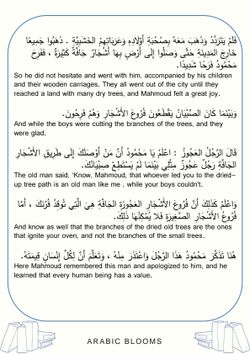 فَلَمْ يَتَرَدَّدْ وَذَهَبَ مَعَهُ بِصُحْبَةِ أَوْلَادِهِ وَعَرَبَاتِهِمُ الْخَشَبِيَّةِ . ذَهَبُوا جَمِيعًا
خَارِجَ الْمَدِينَةِ حَتَّى وَصَلُوا إِلَى أَرْضٍ بِهَا أَشْجَارٌ جَافَّةٌ كَثِيرَةٌ ، فَفَرِحَ
مَحْمُودٌ فَرَحًا شَدِيدًا.
So he did not hesitate and went with him, accompanied by his children
and their wooden carriages. They all went out of the city until they
reached a land with many dry trees, and Mahmoud felt a great joy.
وَبَيْنَمَا كَانَ الصِّبْيَانُ يَقْطَعُونَ فُرُوعَ الْأَشْجَارِ وَهُمْ فَرِحُونَ.
And while the boys were cutting the branches of the trees, and they
were glad.
قَالَ الرَّجُلُ الْعَجُوزُ : اعْلَمْ يَا مَحْمُودُ أَنَّ مَنْ أَوْصَلَكَ إِلَى طَرِيقِ الْأَشْجَارِ
الْجَافَّةِ رَجُلٌ عَجُوزٌ مِثْلِي بَيْنَمَا لَمْ يَسْتَطِعْ صِبْيَانُكَ.
The old man said, 'Know, Mahmoud, that whoever led you to the dried–
up tree path is an old man like me , while your boys couldn't.
وَاعْلَمْ كَذَلِكَ أَنَّ فُرُوعَ الْأَشْجَارِ الْعَجُوزَةِ الْجَافَّةِ هِيَ الَّتِي تُوقَدُ فُرْنَكَ ، أَمَّا
فُرُوعُ الْأَشْجَارِ الصَّغِيرَةِ فَلَا يُمْكِنُهَا ذَلِكَ.
And know as well that the branches of the dried old trees are the ones
that ignite your oven, and not the branches of the small trees.
هُنَا تَذَكَّرَ مَحْمُودٌ هَذَا الرَّجُلَ وَاعْتَذَرَ مِنْهُ ، وَتَعَلَّمَ أَنَّ لِكُلِّ إِنْسَانٍ قِيمَتَهُ.
Here Mahmoud remembered this man and apologized to him, and he
learned that every human being has a value.
ARABIC BLOOMS